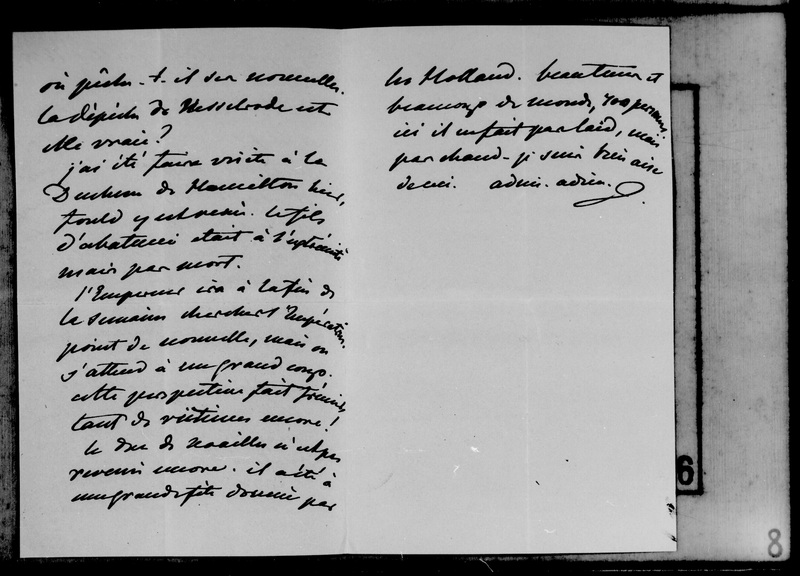 où pêche-t-il ses nouvelles.
la dépêche de Nesselrode est
elle vraie?
j'ai été faire visite à la
Duchesse de Hamilton hier,
fould y est venu. le fils
d'abatucci était à l'extrémité
mais pas mort.
l'Empereur ira à la fin de
la semaine chercher l'Impératrice.
point de nouvelle, mais on
s'attend à un grand coup.
cette perspective fait frémir,
tant de victimes encore!
le duc de Noailles n'est pas
revenu encore. il a été à
une grande fête donnée par
les Holland. beau temps et
beaucoup de monde, 400 personnes.
ici il ne fait pas laid, mais
pas chaud - je suis bien aise
adieu. adieu.
6
8